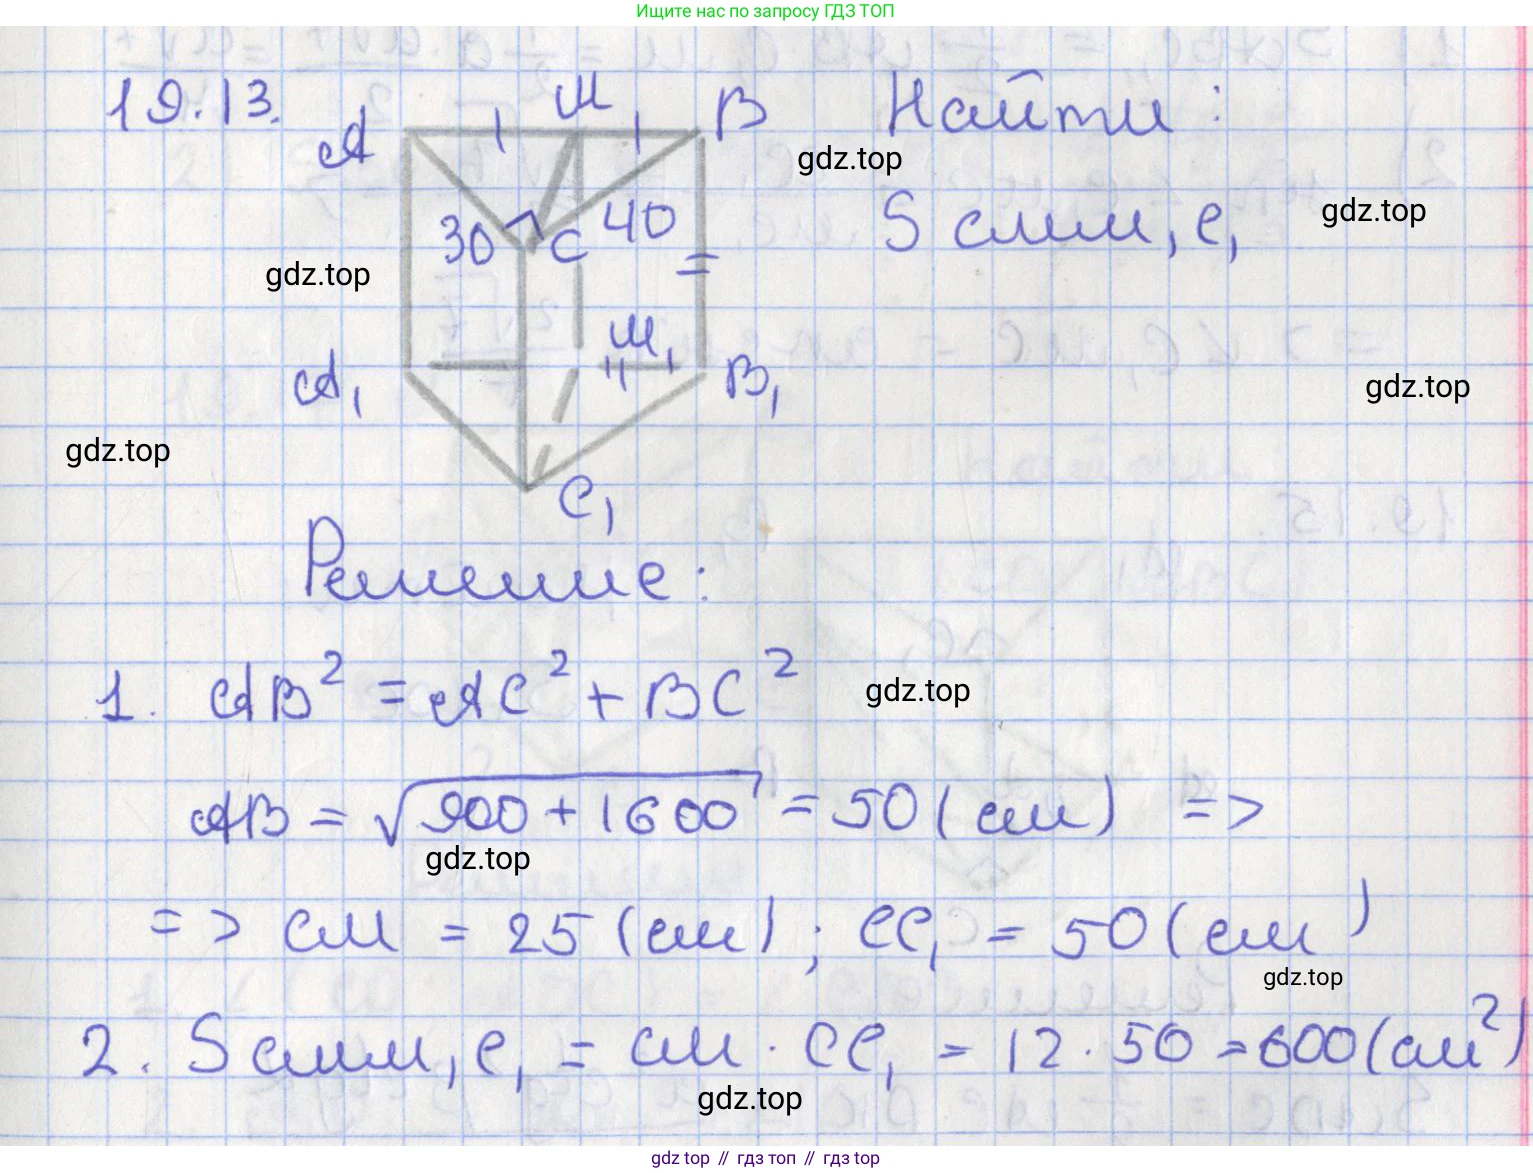 Ищите нас по запросу ГДЗ ТОП
19.13.
A M B Найти:
gdz.top
30 C 40 S CMM₁C₁
gdz.top
gdz.top
=
M₁
A₁ B₁
gdz.top
gdz.top
C₁
Решение:
1. AB² = AC² + BC²
gdz.top
AB = √900 + 1600 = 50 (см) =>
gdz.top
=> CM = 25 (см); CC₁ = 50 (см)
gdz.top
2. S CMM₁C₁ = CM · CC₁ = 12 · 50 = 600 (см²)
gdz.top
gdz top // гдз топ // гдз top